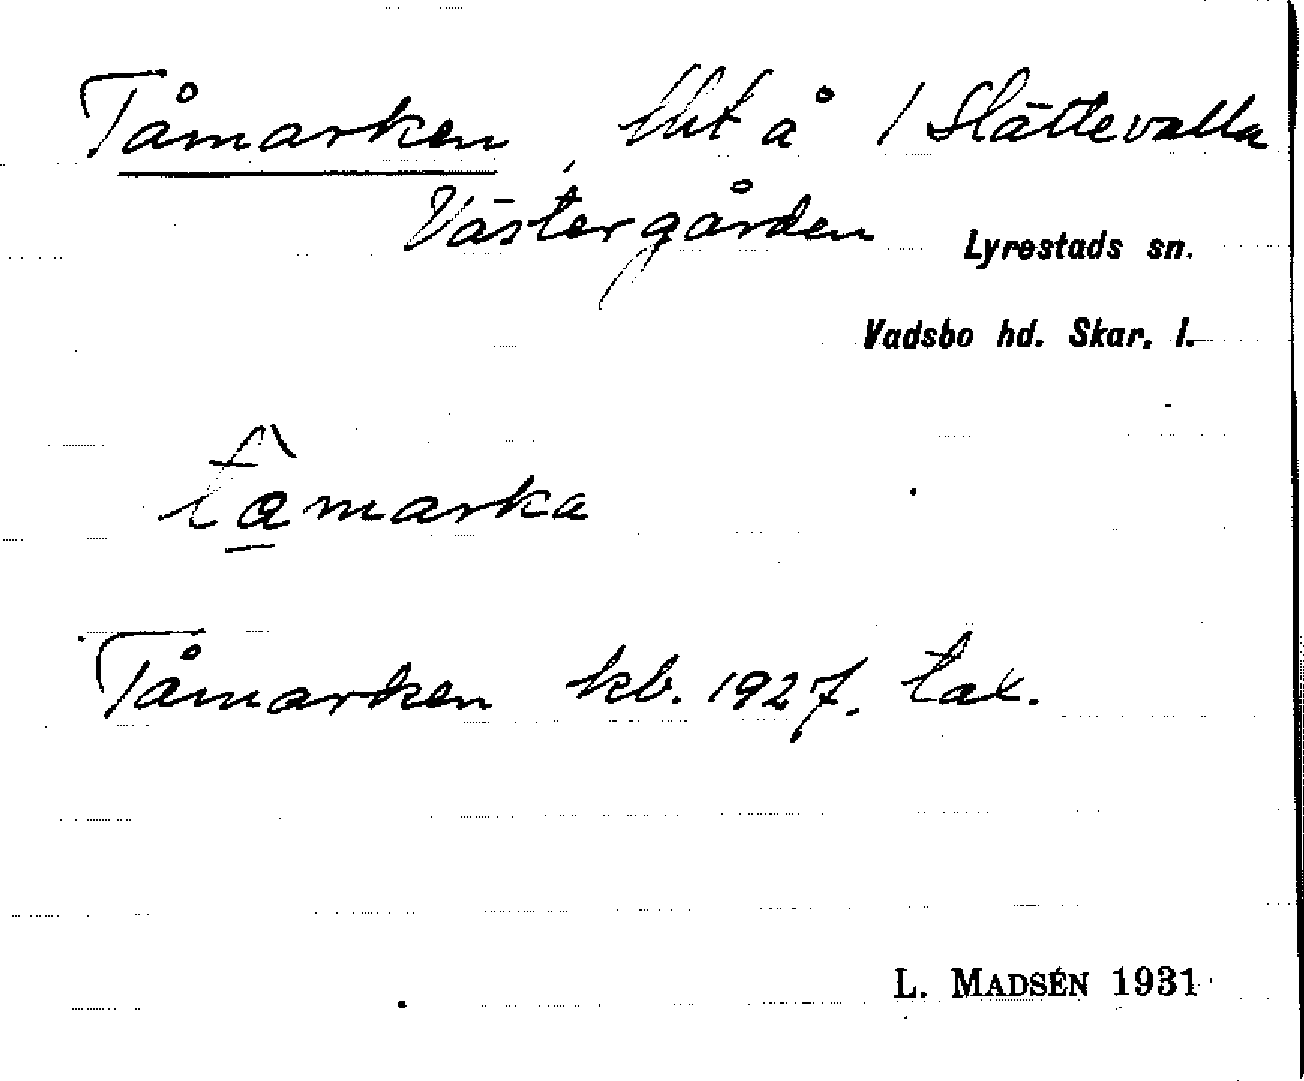 Tåmarken, lht å 1 Slättevalla
Västergården
Lyrestads sn.
Vadsbo hd. Skar. l.
tàmarka
Tåmarken kb. 1927. tax.
L. MADSÉN 1931